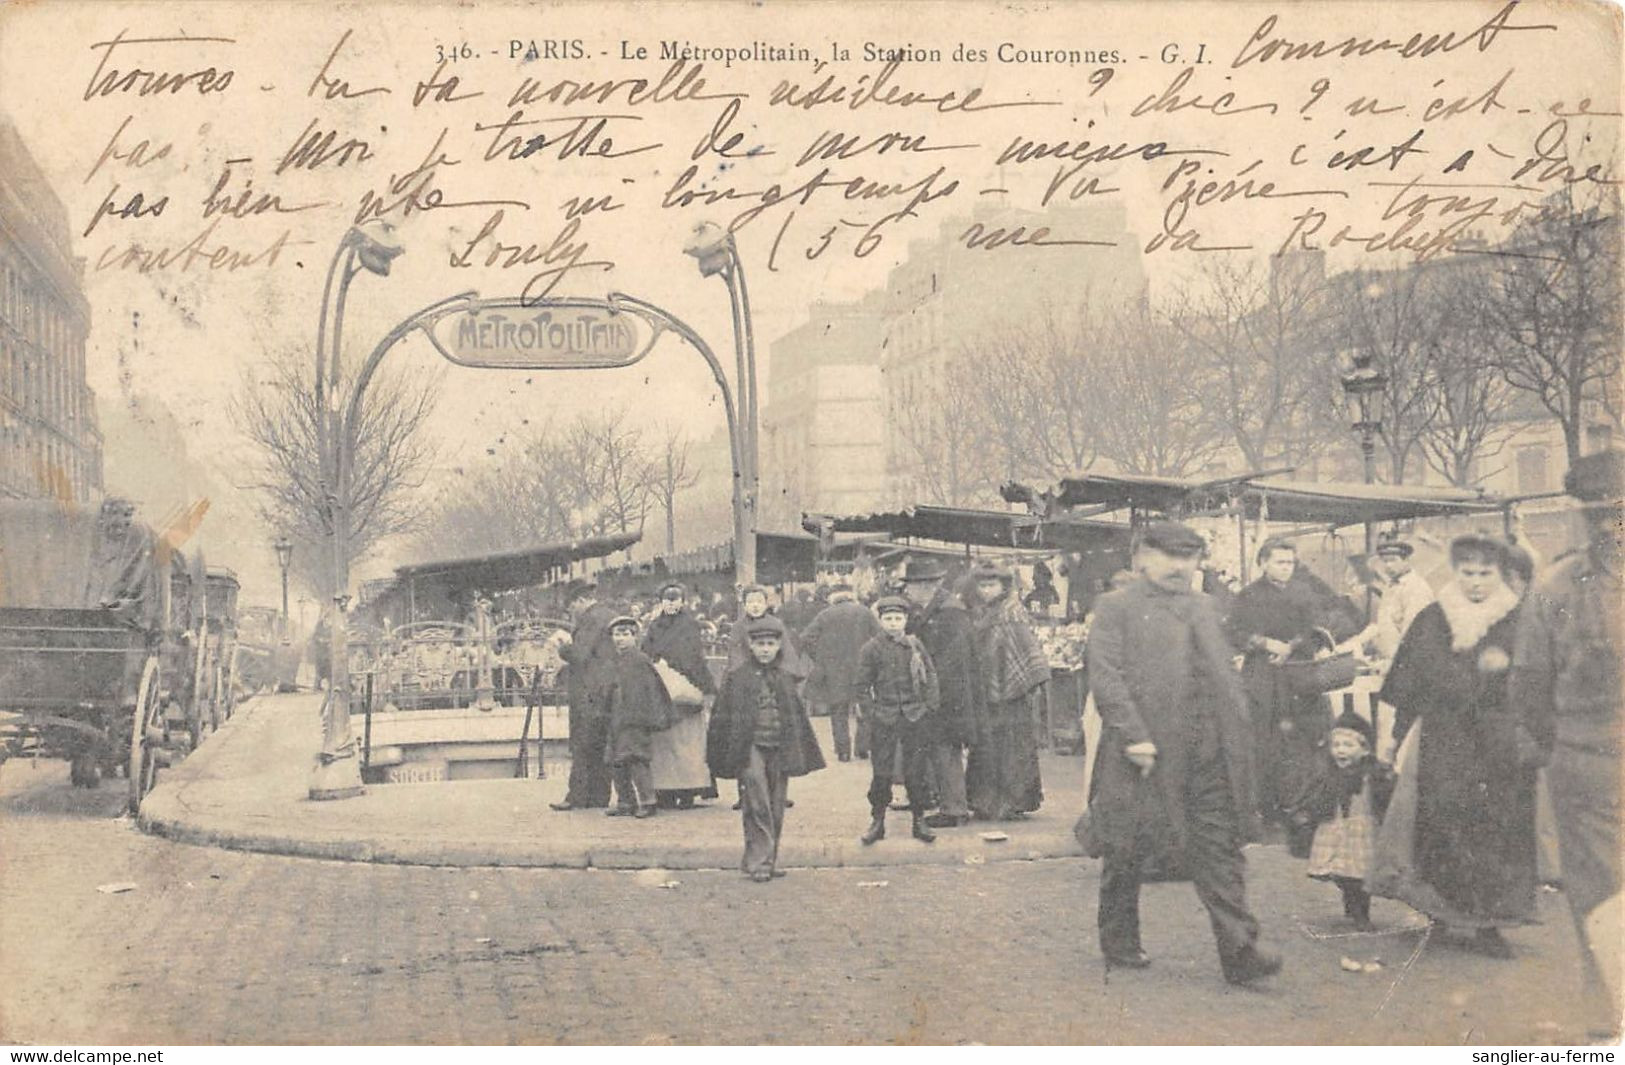 346. - PARIS. - Le Métropolitain, la Station des Couronnes. - G. I.
Comment
trouves - tu ta nouvelle résidence ? chic ? n'est-ce
pas - Moi je trotte de mon mieux c'est à dire
pas bien vite ni longtemps - Vu Pierre toujours
content. Louly (56 rue da Rocher
METROPOLITAIN
SORTIE
sanglier-au-ferme